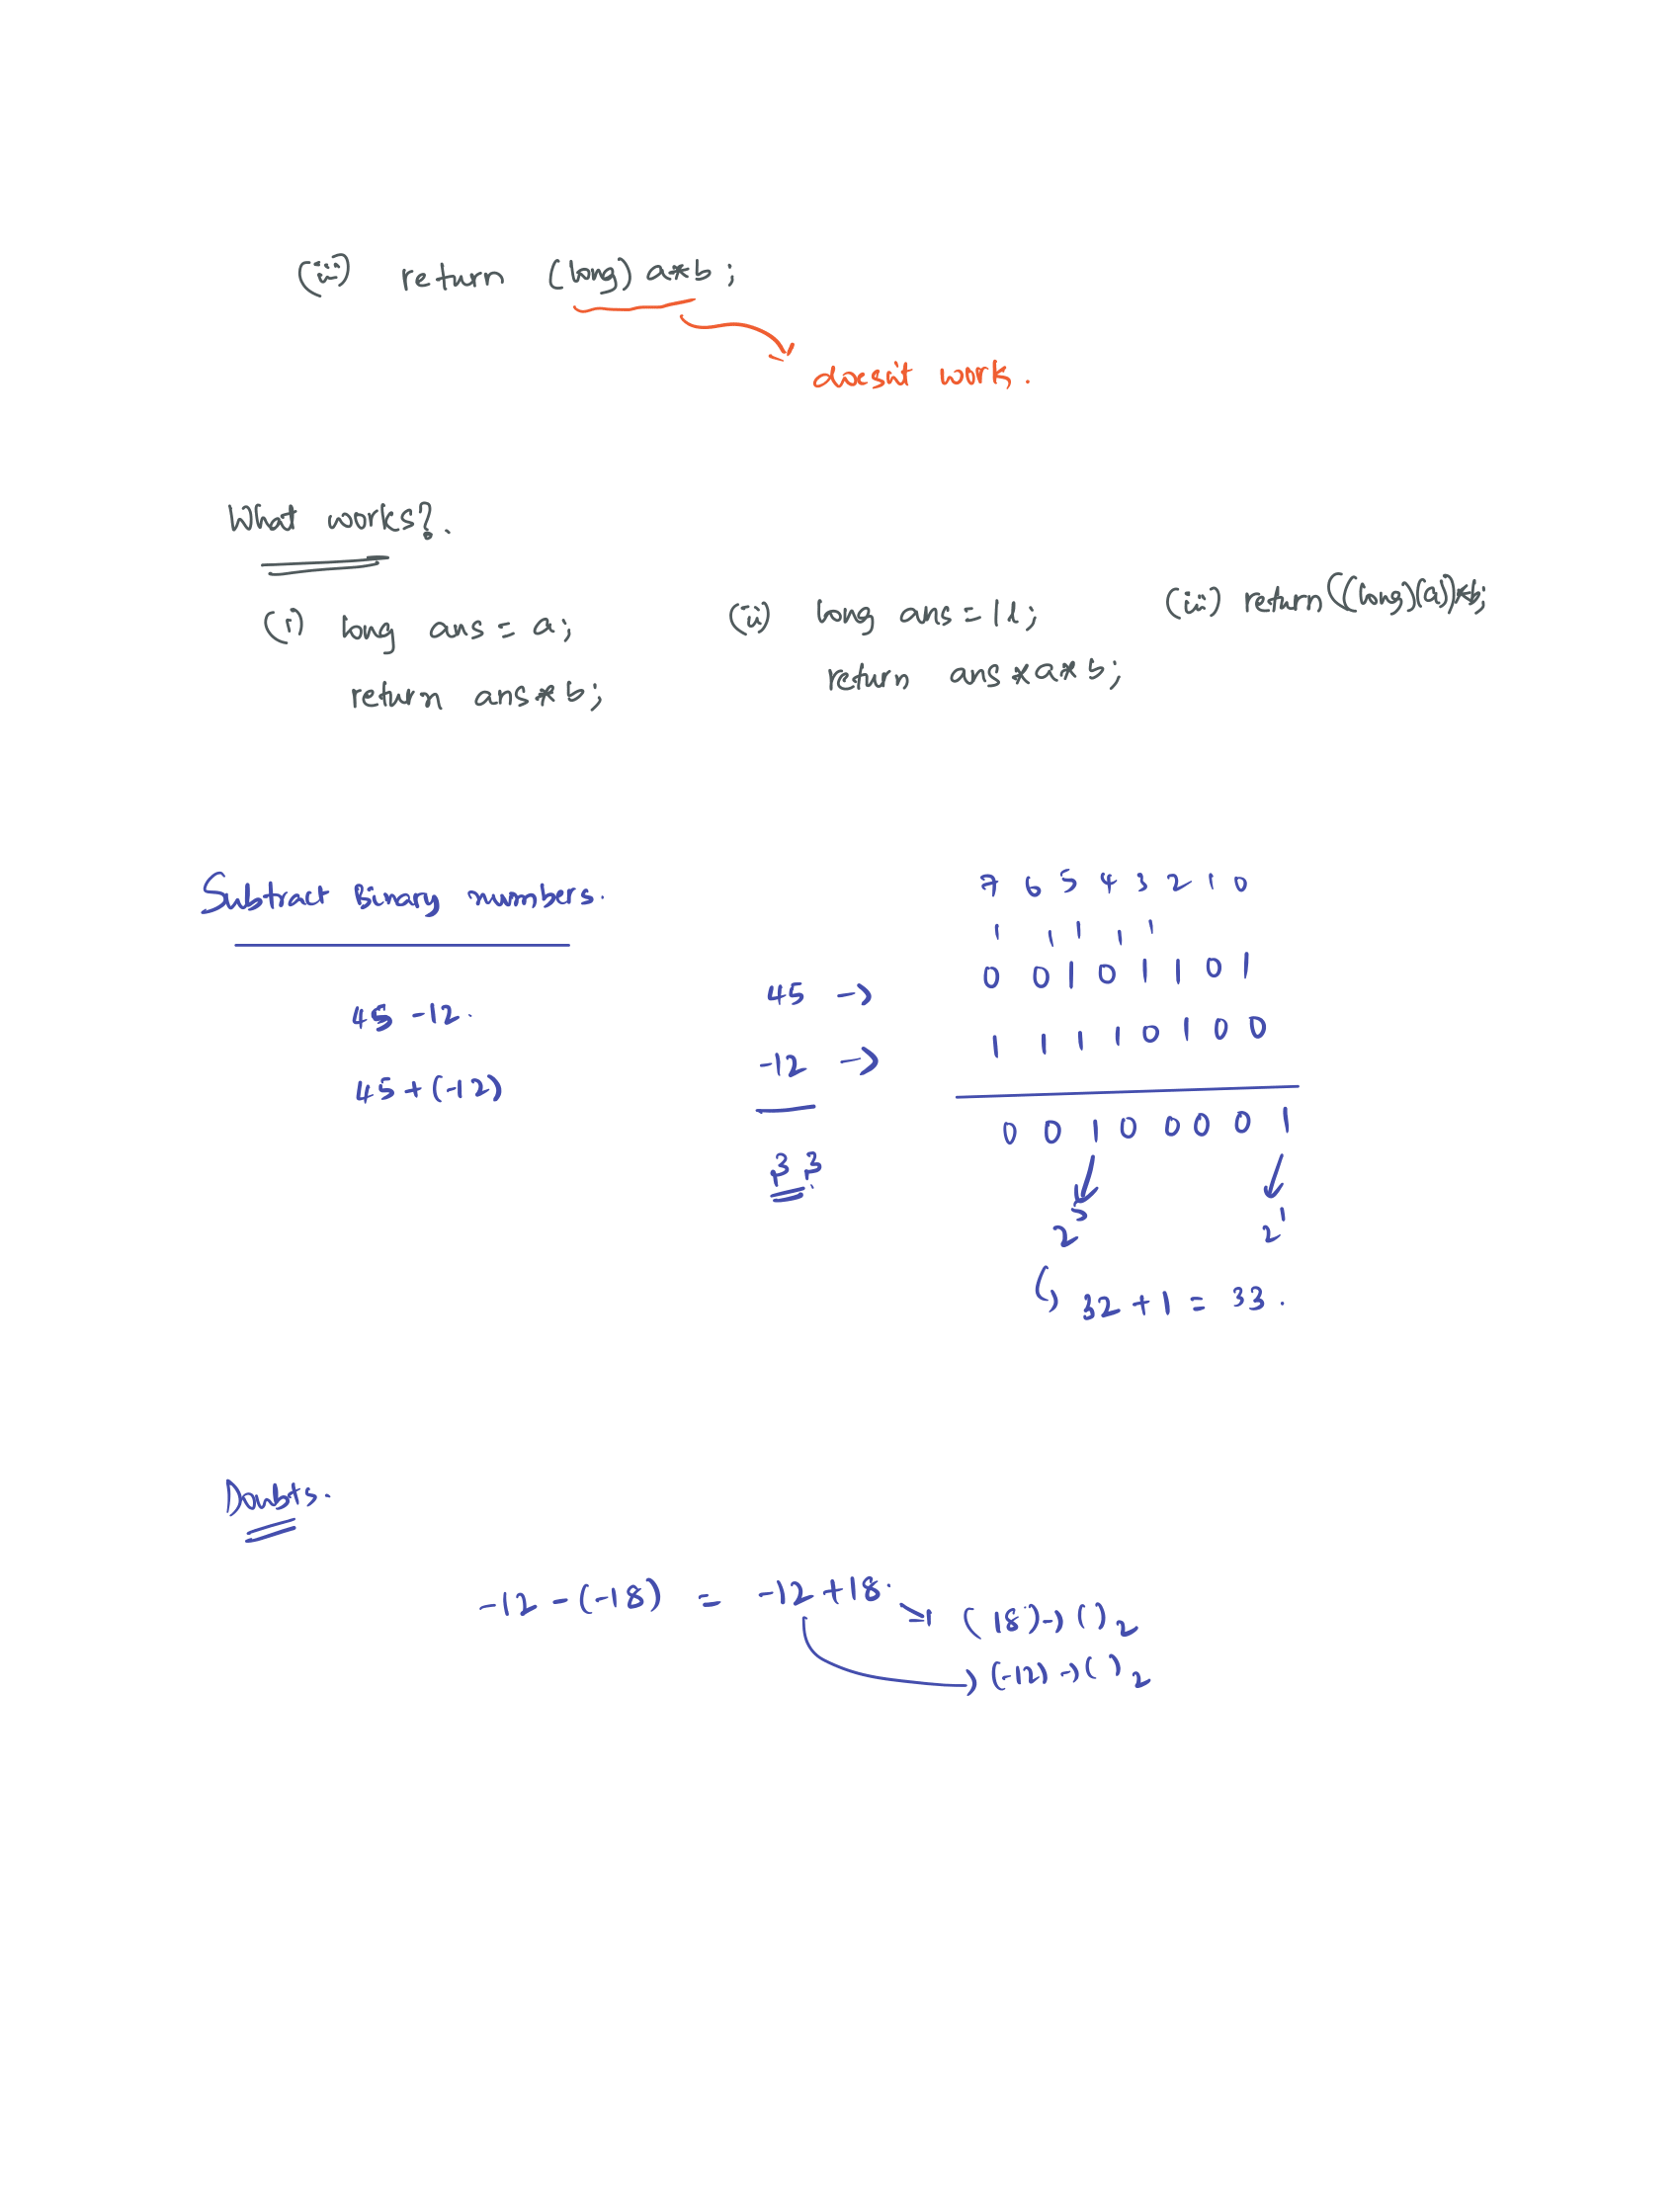 (iii) return (long) a*b;
doesn't work.
What works?.
(i) long ans = a;
return ans*b;
(ii) long ans = 1l;
return ans*a*b;
(iii) return ((long)(a))*b;
Subtract Binary numbers.
45 -12.
45+(-12)
7 6 5 4 3 2 1 0
1 1 1 1 1
45 -> 0 0 1 0 1 1 0 1
-12 -> 1 1 1 1 0 1 0 0
33 0 0 1 0 0 0 0 1
2^5 2^1
32 + 1 = 33.
Doubts.
-12 - (-18) = -12 +18. (18)->( )2
(-12)->( )2